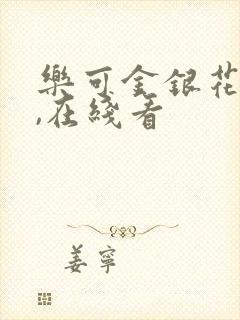 樂可金銀花
,在綫看
姜寧